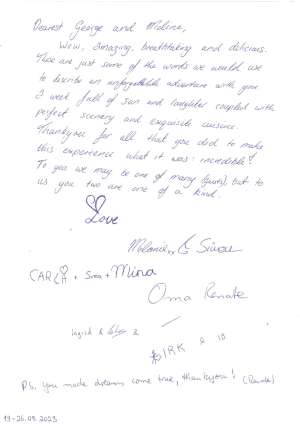 Dearest George and Melina,
Wow, Amazing, breathtaking and delicious.
These are just some of the words we would use
to discribe an unforgettable adventure with you.
I week full of sun and laughter coupled with
perfect scenery and exquisite cuisine.
Thankyou for all that you did to make
this experience what it was: incredible!
To you we may be one of many (guests), but to
us you two are one of a kind.
Love
Melanie xx & Simon
+ Svea + Mina
Oma Renate
Ingrid &
DIRK &
P.S. You made dreams come true, thankyou! (Renate)
19-26.08.2023